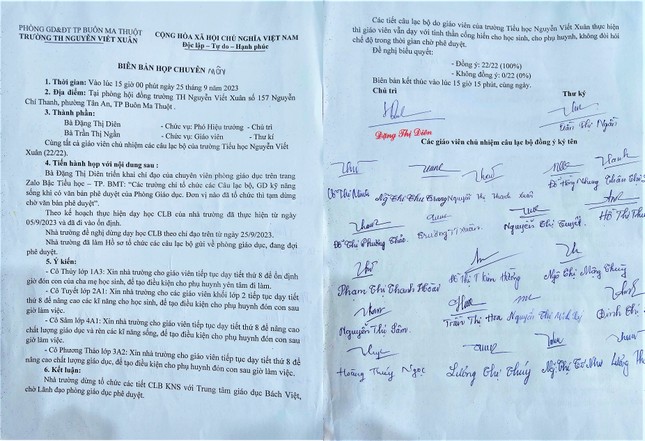 PHÒNG GD&ĐT TP BUÔN MA THUỘT
TRƯỜNG TH NGUYỄN VIẾT XUÂN
CỘNG HÒA XÃ HỘI CHỦ NGHĨA VIỆT NAM
Độc lập – Tự do – Hạnh phúc
BIÊN BẢN HỌP CHUYÊN MÔN
1. Thời gian: Vào lúc 15 giờ 00 phút ngày 25 tháng 9 năm 2023
2. Địa điểm: Tại phòng hội đồng trường TH Nguyễn Viết Xuân số 157 Nguyễn
Chí Thanh, phường Tân An, TP Buôn Ma Thuột .
3. Thành phần:
Bà Đặng Thị Diên - Chức vụ: Phó Hiệu trưởng - Chủ trì
Bà Trần Thị Ngân - Chức vụ: Giáo viên - Thư kí
Cùng tất cả giáo viên chủ nhiệm các câu lạc bộ của trường Tiểu học Nguyễn Viết
Xuân (22/22).
4. Tiến hành họp với nội dung sau :
Bà Đặng Thị Diên triển khai chỉ đạo của chuyên viên phòng giáo dục trên trang
Zalo Bậc Tiểu học – TP. BMT: “Các trường chỉ tổ chức các Câu lạc bộ, GD kỹ năng
sống khi có văn bản phê duyệt của Phòng Giáo dục. Đơn vị nào đã tổ chức thì tạm dừng
chờ văn bản phê duyệt”.
Theo kế hoạch thực hiện dạy học CLB của nhà trường đã thực hiện từ ngày
05/9/2023 và đã đi vào ổn định.
Nhà trường đề nghị dừng dạy học CLB theo chỉ đạo trên từ ngày 25/9/2023.
Nhà trường đã làm Hồ sơ tổ chức các câu lạc bộ gửi về phòng giáo dục, đang đợi
phê duyệt.
5. Ý kiến:
- Cô Thủy lớp 1A3: Xin nhà trường cho giáo viên tiếp tục dạy tiết thứ 8 để ổn định
giờ đón con của cha mẹ học sinh, để tạo điều kiện cho phụ huynh yên tâm đi làm.
- Cô Tuyết lớp 2A1: Xin nhà trường cho các giáo viên khối lớp 2 tiếp tục dạy tiết
thứ 8 để nâng cao các kĩ năng cho học sinh, để tạo điều kiện cho phụ huynh đón con sau
giờ làm việc.
- Cô Sâm lớp 4A1: Xin nhà trường cho giáo viên tiếp tục dạy tiết thứ 8 để nâng cao
chất lượng giáo dục và rèn các kĩ năng sống, để tạo điều kiện cho phụ huynh đón con
sau giờ làm việc.
- Cô Phương Thảo lớp 3A2: Xin nhà trường cho giáo viên tiếp tục dạy tiết thứ 8 để
nâng cao chất lượng giáo dục, để tạo điều kiện cho phụ huynh đón con sau giờ làm việc.
6. Kết luận:
Nhà trường dừng tổ chức các tiết CLB KNS với Trung tâm giáo dục Bách Việt,
chờ Lãnh đạo phòng giáo dục phê duyệt.
Các tiết câu lạc bộ do giáo viên của trường Tiểu học Nguyễn Viết Xuân thực hiện
thì giáo viên vẫn dạy với tinh thần cống hiến cho học sinh, cho phụ huynh, không đòi hỏi
chế độ trong thời gian chờ phê duyệt.
Đề nghị biểu quyết:
- Đồng ý: 22/22 (100%)
- Không đồng ý: 0/22 (0%)
Biên bản kết thúc vào lúc 15 giờ 15 phút, cùng ngày.
Chủ trì Thư ký
Đặng Thị Diên Trần Thị Ngân
Các giáo viên chủ nhiệm câu lạc bộ đồng ý ký tên
Ng Thị Thu Trang Nguyễn Thị Thanh
Đỗ Thị Phương Thảo Trương Thị Xuân Nguyễn Thị Tuyết Hồ Thị Thu
Phạm Thị Thanh Hoài Đỗ Thị Kim Hương Ngô Thị Mộng Thùy
Nguyễn Thị Sâm Trần Thị Hoa Nguyễn Thị Đinh Thị
Hoàng Thúy Ngọc Lương Thị Thúy Ng Thị Tơ Như Lương